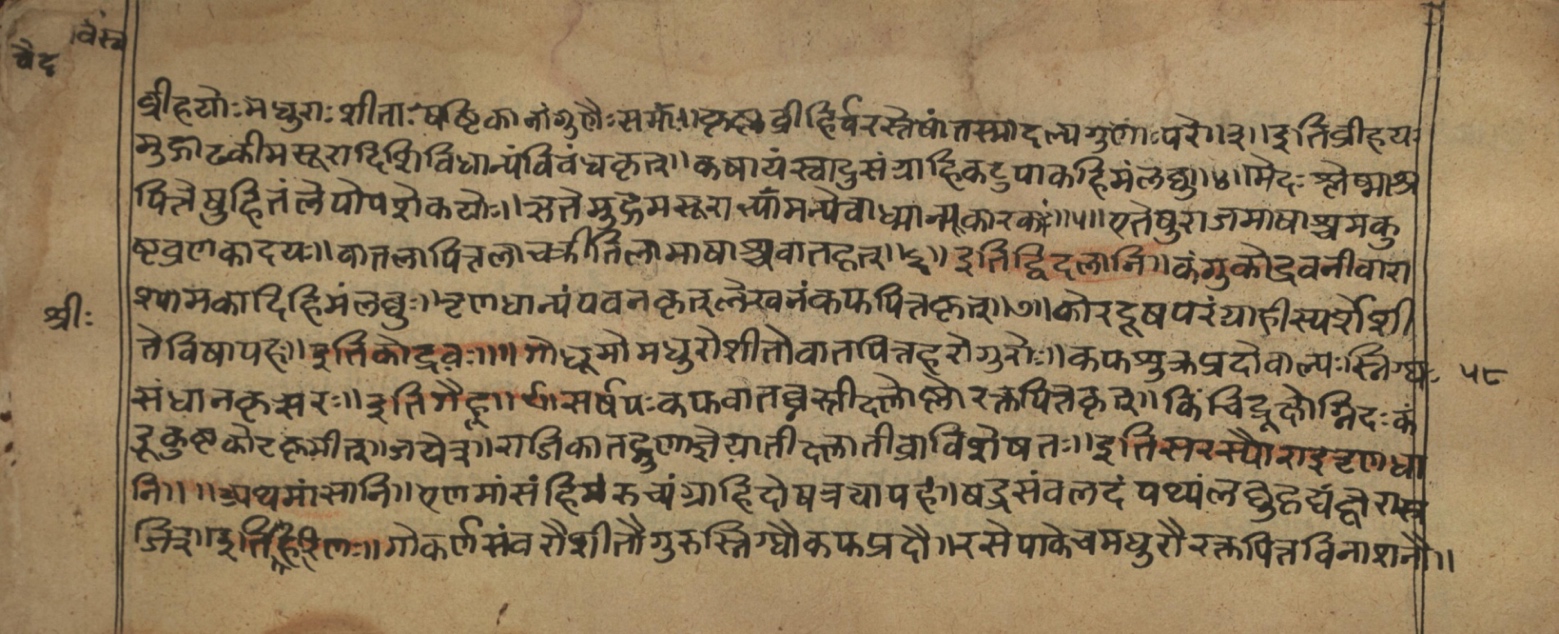 वैद्य विस्त
व्रीहयोः मधुराः शीताः षष्टिकानां गुणैः समाः॥ कृष्ण व्रीहिर्वरस्तेषां तस्मादल्पगुणाः परे॥३॥ इति व्रीहयः
मुद्गाढकीमसूरादि शिंविधान्यं विवंधकृत्॥ कषायं स्वादु संग्राहि कटुपाक हिमं लघु॥४॥ मेदः श्लेष्माश्र
पित्तेषु हितं लेपोपशेकयोः॥ ऋते मुद्गमसूराभ्यामन्येवाध्मानकारकः॥५॥ एतेषु राजमाषाश्च मकु
ष्टव्रणकादयः॥ वातला पित्तला चक्री तिला माषाश्च वातहृत्॥६॥ इति द्विदलानि॥ कंगुकोद्रवनीवारा
श्यामकादि हिमं लघुः॥ तृणधान्यं पवनकृत् लेखनं कफपित्तकृत्॥७॥ कोरदूष परं ग्राही स्पर्शे शी
श्रीः
ते विषापहः॥ इति कोद्रवः॥॥ गोधूमो मधुरो शीतो वातपित्तहरो गुरोः॥ कफशुक्रप्रदो वाल्यः स्निग्धः
५८
संधानकृत्सरः॥ इति गैहू॥ सर्षपः कफवातघ्नस्तीक्ष्णोष्णो रक्तपित्तकृत्॥ किंचिद्रूक्षोग्निदः कं
डूकुष्टकोटकृमीन् जयेत्॥ राजिका तद्गुणा ज्ञेया तीक्ष्णा तीव्रा विशेषतः॥ इति सरस्यौ राइ तृणधा
नि॥ ॥ अथ मांसानि॥ एण मांसं हिमं रुच्यं ग्राहि दोषत्रयापहं॥ षड्रसं वलदं पथ्यं लघु हृद्यं
जित्॥ इति हरिणः॥ गोकर्ण संवरौ शीतौ गुरु स्निग्धौ कफप्रदौ॥ रसे पाके च मधुरौ रक्तपित्तविनाशनौ॥